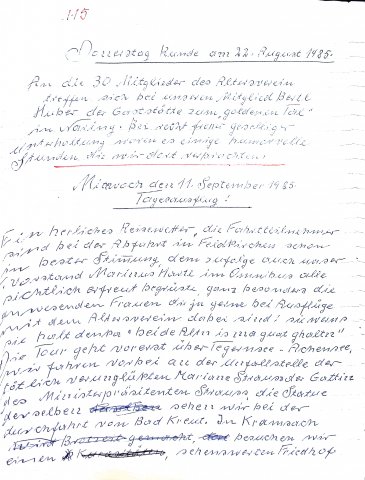 115
Donnerstag Runde am 22. August 1985.
An die 30 Mitglieder des Altersverein
treffen sich bei unseren Mitglied Berti
Huber der Gaststätte zum "goldenen Tal"
in Naring. Bei recht
Unterhaltung waren es einige humorvolle
Stunden die wir dort verbrachten.
Mittwoch den 11. September 1985
Tagesausflug!
Ein herliches Reisewetter, die Fahrtteilnehmer
sind bei der Abfahrt in Feldkirchen schon
in bester Stimmung dem zufolge auch unser
Vorstand Marinus Hartl im Omnibus alle
sichtlich erfreut begrüste ganz besonders die
anwesenden Frauen die ja gerne bei Ausflüge
mit dem Altersverein dabei sind:
sie halt denka "beide Altn is ma guat ghaltn"
Die Tour geht vorerst über Tegernsee - Achensee,
wir fahren vorbei an der Unfallstelle der
tötlich verunglükten Mariane Strauss der Gattin
des Ministerpräsitenten Strauss, die Statue
derselben sehen wir bei der
durchfahrt von Bad Kreut. In Kramsach
wird Brotzeit gemacht, besuchen wir
einen sehenswerten Friedhof